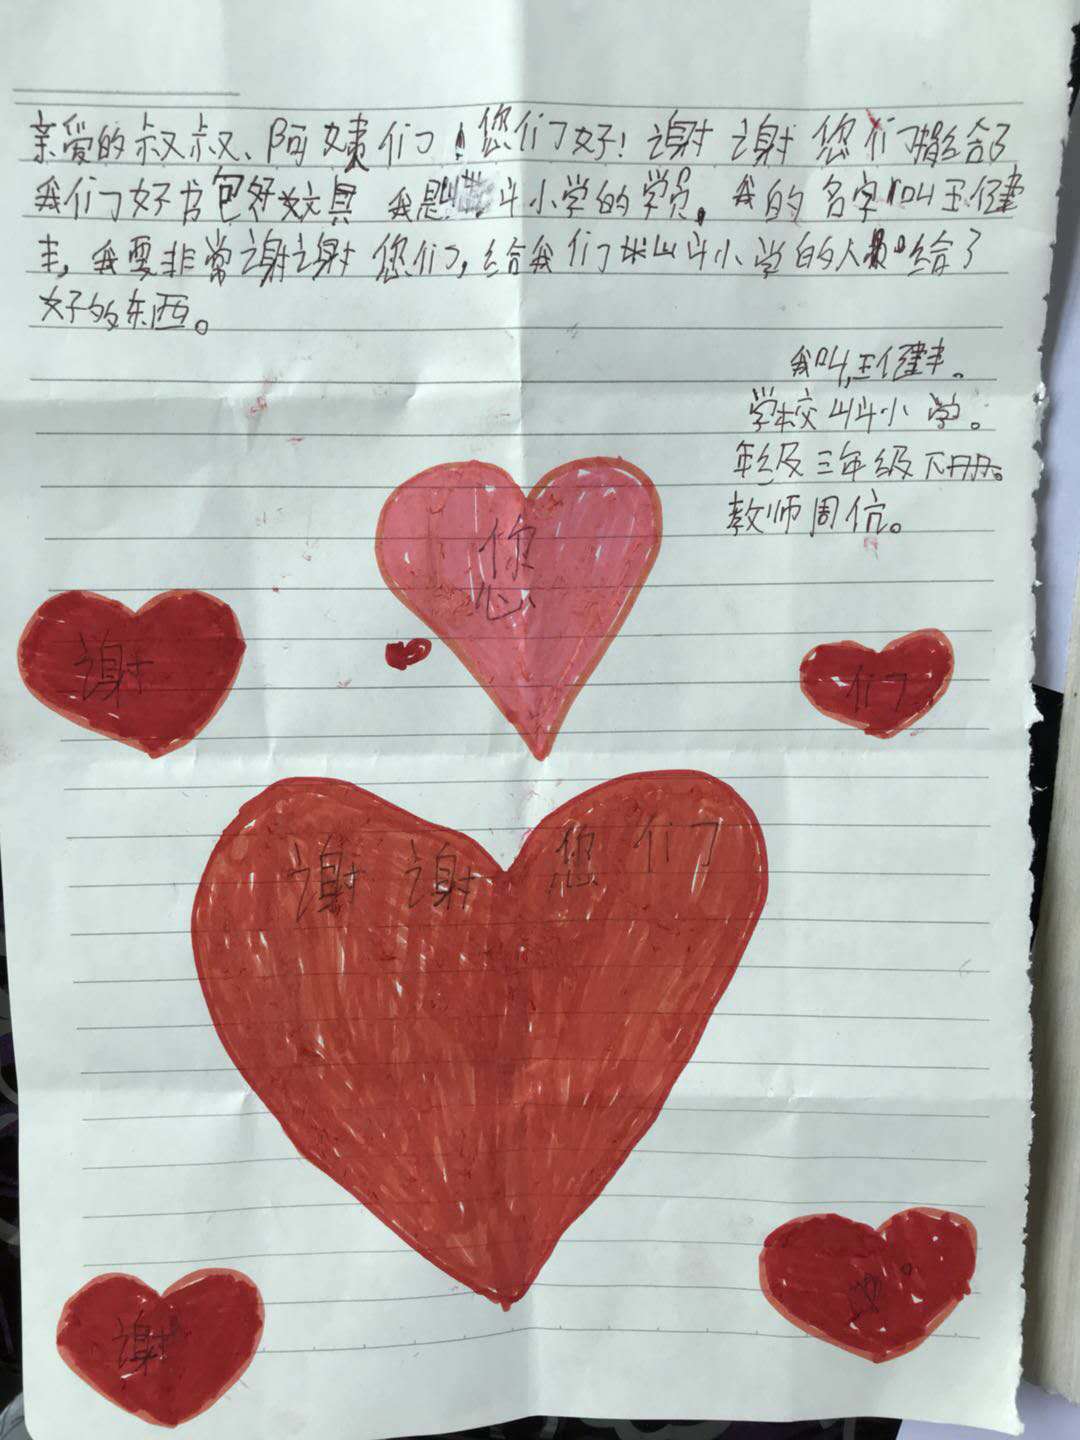 亲爱的叔叔、阿姨们!您们好!谢谢您们捐给了
我们好书包好文具 我是斗小学的学员。我的名字叫王健
丰,我要非常谢谢您们,给我们山斗小学的人员给了
好的东西。
我叫,王健丰。
学校 山斗小学。
年级及三年级下册。
教师周信。
您
谢
们
谢谢您们
谢